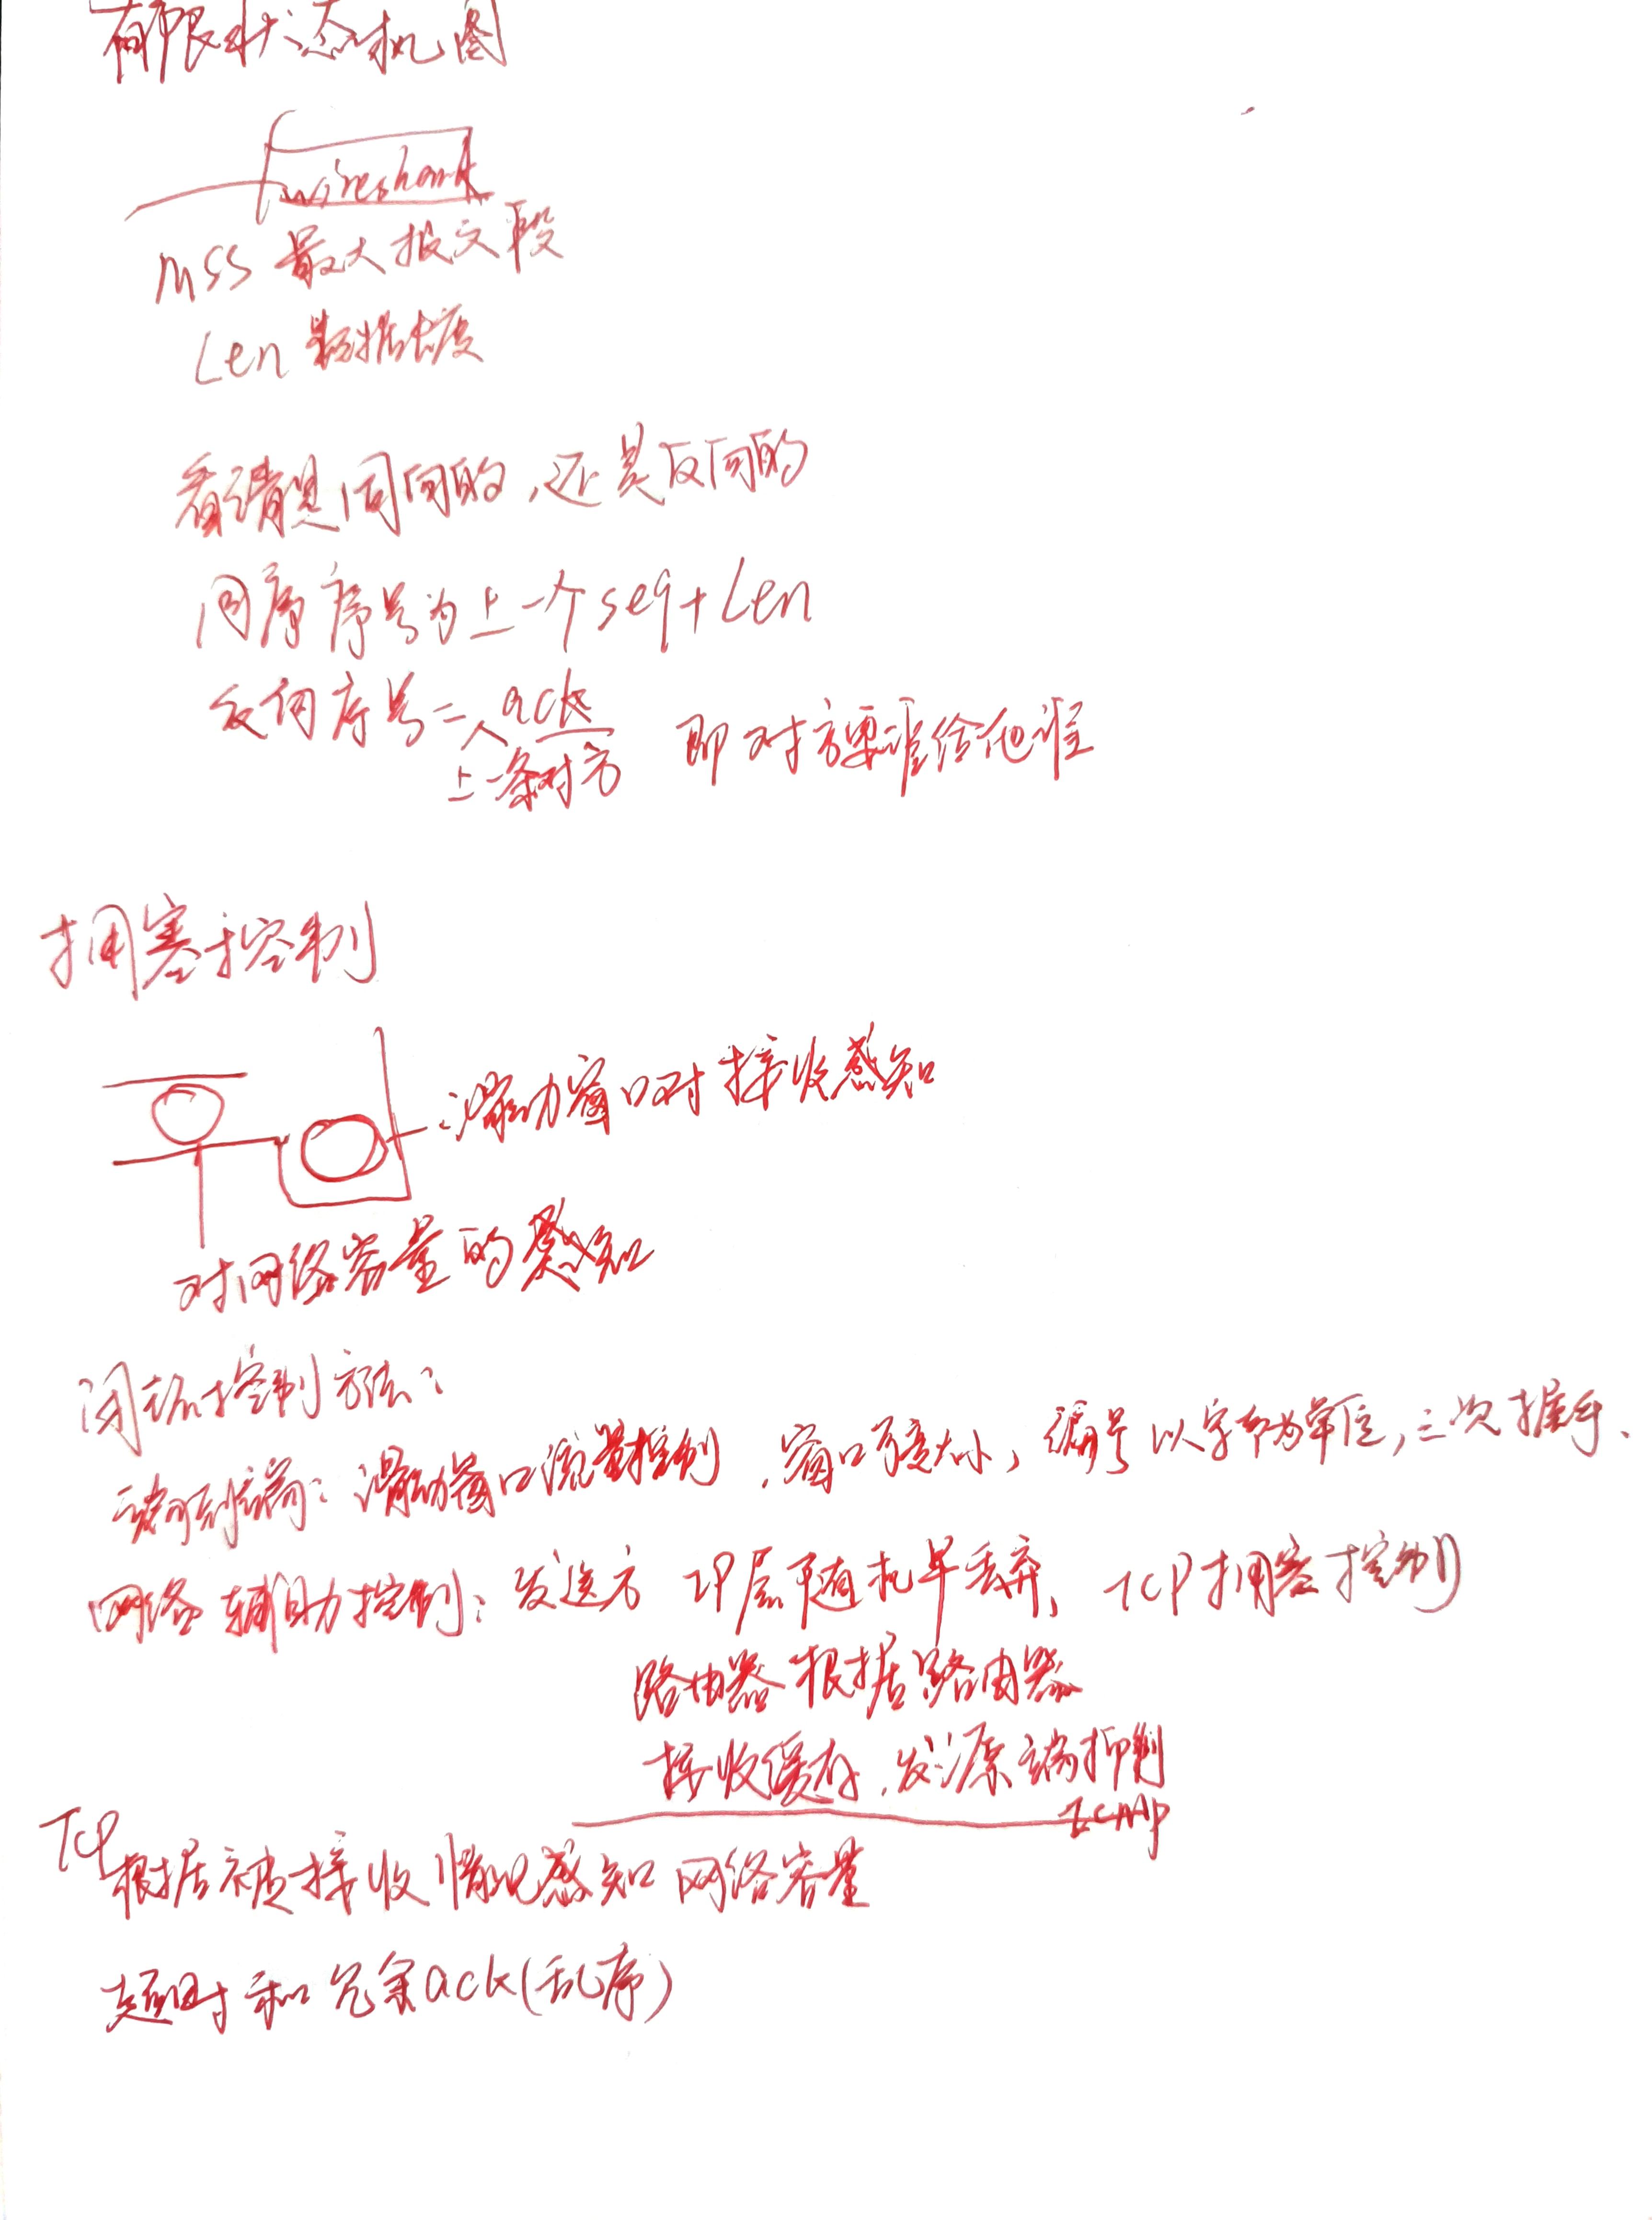 有限状态机图
wireshark
MSS 最大报文段
Len 数据长度
看清是同向的,还是反向的
同序序号为上一个seq+Len
反向序号=人ack 即对方要谁给他谁
上一条对方
拥塞控制
滑动窗口对接收感知
对网络容量的感知
闭环控制方法:
端到端:滑动窗口流量控制,窗口可变大小,编号以字节为单位,三次握手、
网络辅助控制:发送方 IP层随机早丢弃,TCP拥塞控制
路由器根据路由器
接收缓存,发源端抑制
ICMP
TCP根据被接收情况感知网络容量
超时和冗余ack(乱序)